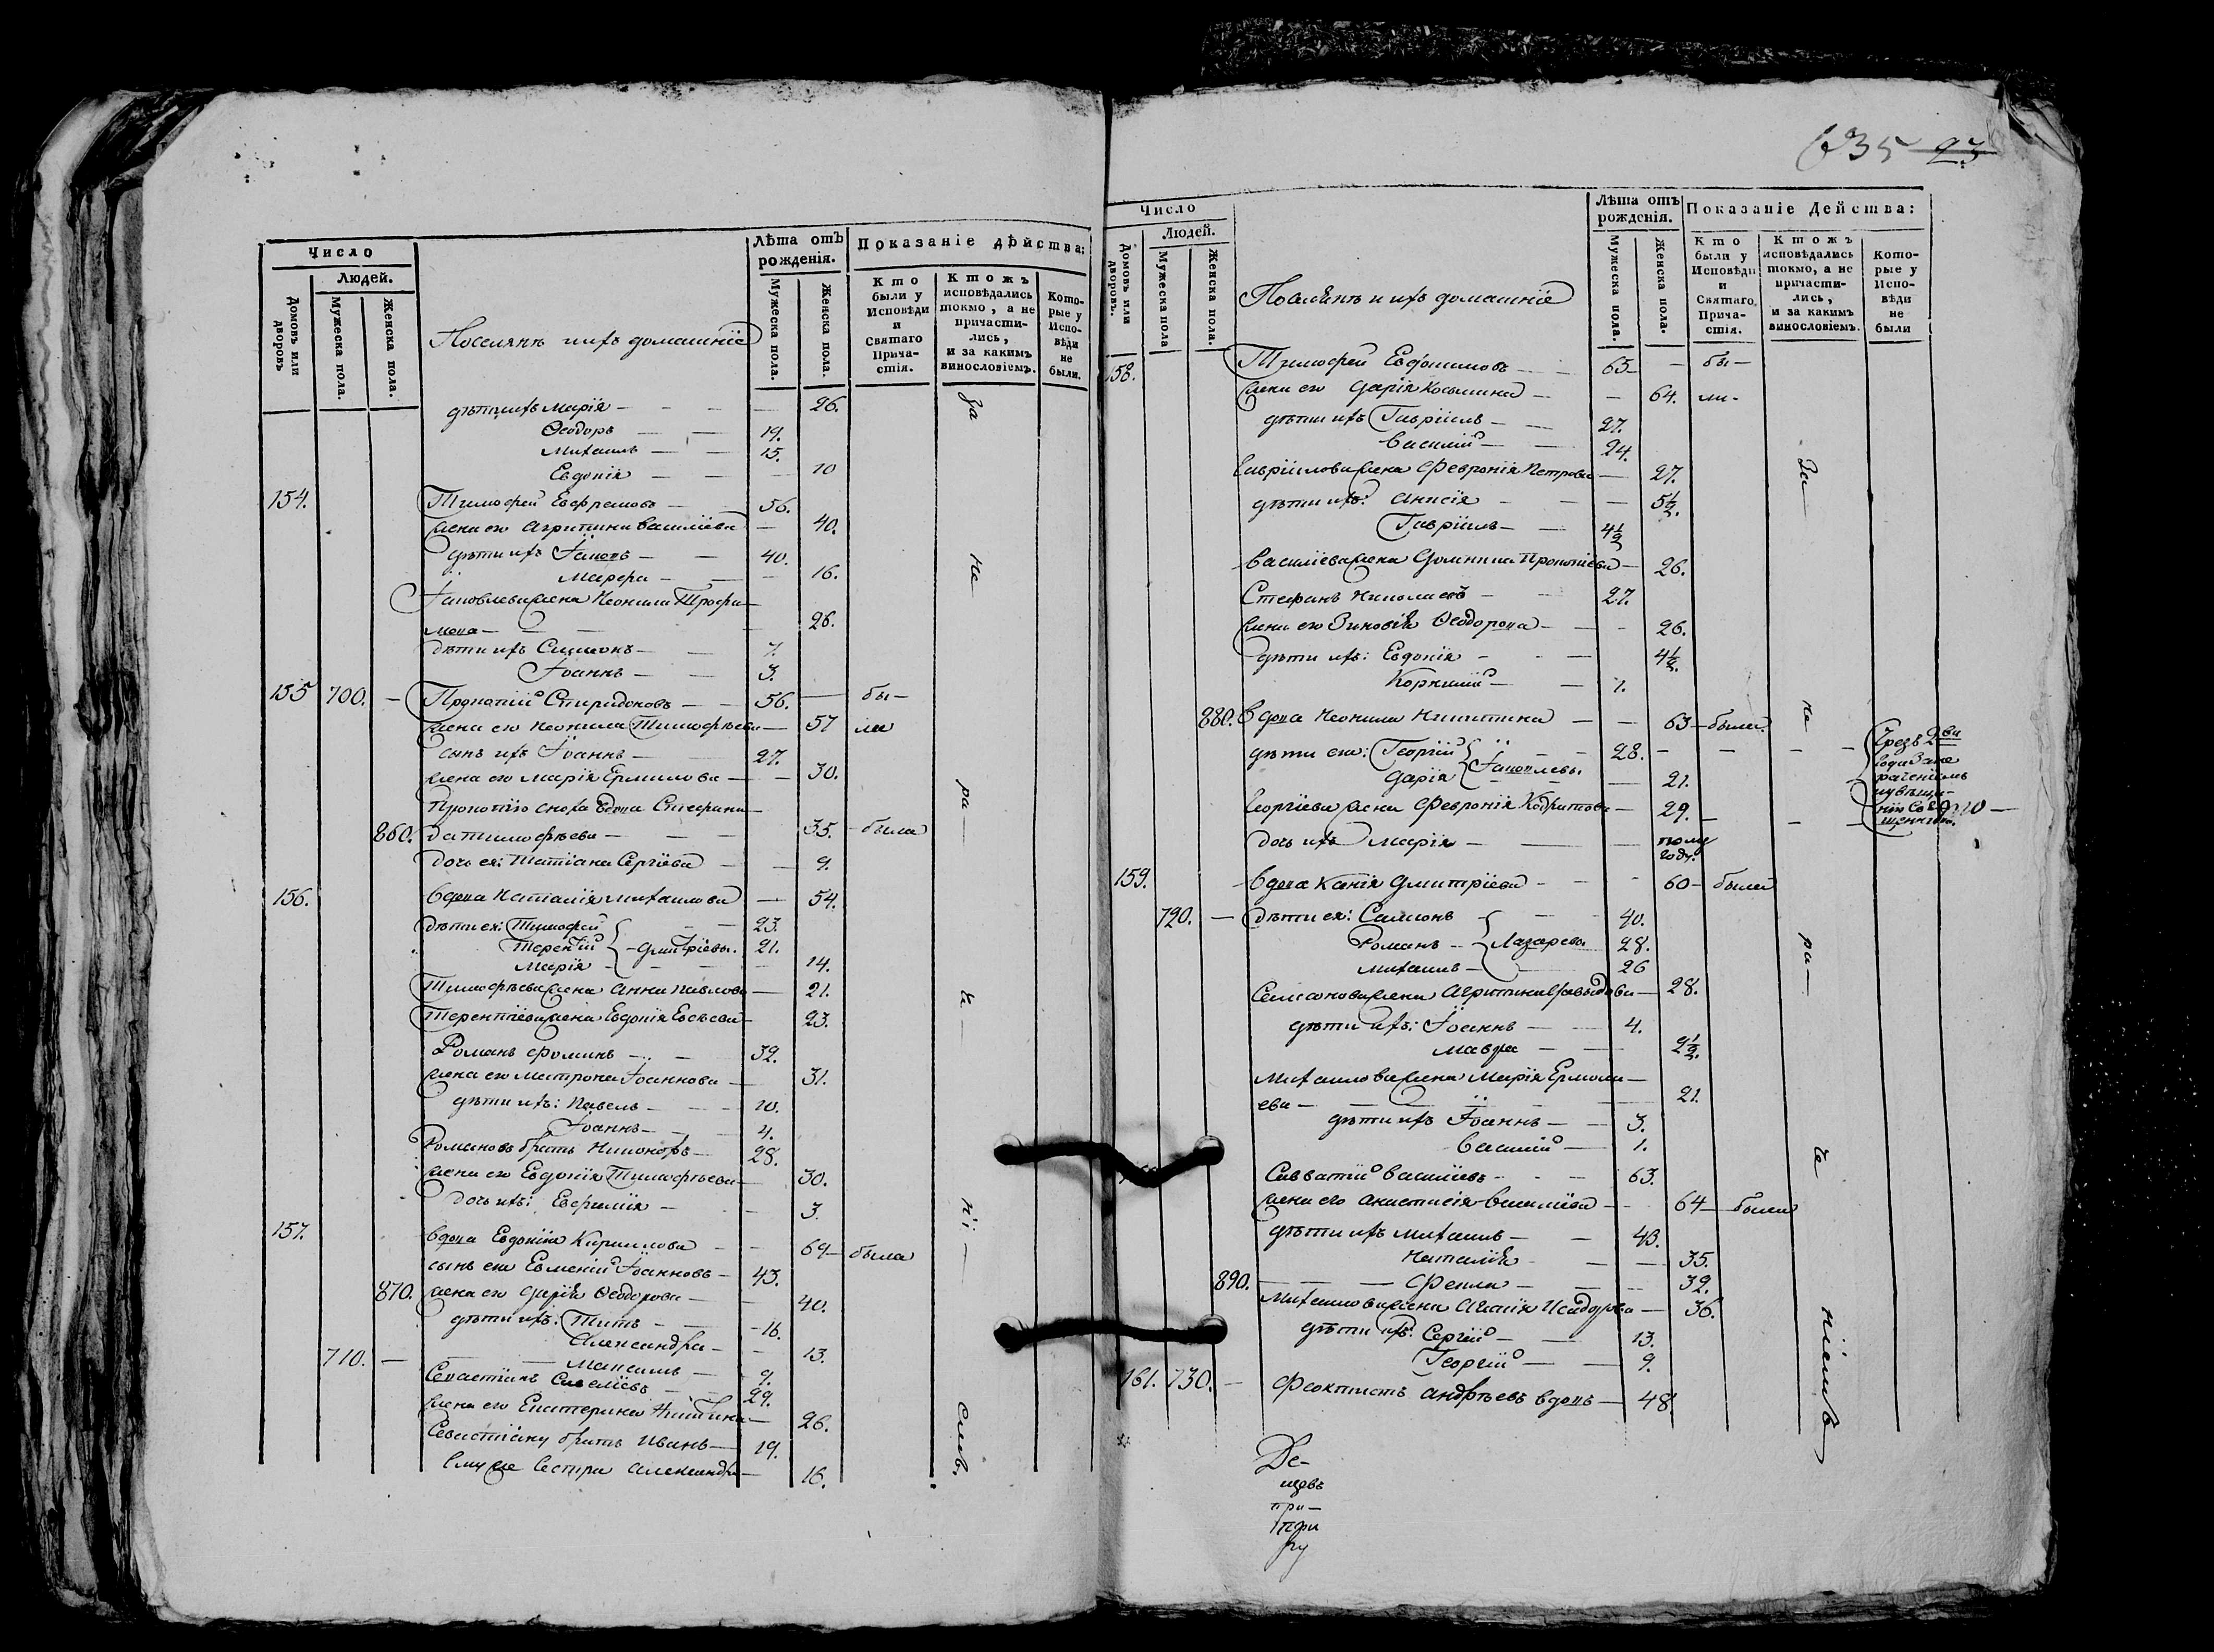 Число
Людей.
Домовъ или дворовъ
Мужеска пола.
Женска пола.
Поселянъ и ихъ домашніе
Лѣта отъ рожденія.
Мужеска пола.
Женска пола.
Показаніе дѣйства:
Кто были у Исповѣди и Святаго Причастія.
Ктожъ исповѣдались токмо, а не причастились, и за какимъ винословіемъ.
Которые у Исповѣди не были.
дѣти ихъ Марія — 26.
Ѳеодоръ — 19.
Михаилъ — 15.
Евдокія — 10
154. Тимофей Евфремовъ 56.
жена его Агрипина Василіева — 40.
дѣти ихъ Іаковъ — 40.
Марфа — 16.
Іаковлева жена Неонила Трофи—
мова — 26.
дѣти ихъ Симеонъ — 7.
Іоаннъ — 3.
155 700. — Прокопій Спиридоновъ — 56. — бы—
жена его Неонила Тимофѣева — 57 ли
сынъ ихъ Іоаннъ — 27.
жена его Марія Ермилова — 30.
Прокопію сноха вдова Стефани—
860. да Тимофѣева — 35. — была
дочь ея: Татіана Сергіева — 9.
156. вдова Наталія Михаилова — 54.
дѣти ея: Тимофей 23.
Терентій — Дмитріевы. 21.
Марія — 14.
Тимофѣева жена Анна Павлова — 21.
Терентіева жена Евдокія Евсѣева — 23.
Романъ Фоминъ — 32.
жена его Матрона Іоаннова — 31.
дѣти ихъ: Павелъ — 10.
Іоаннъ — 4.
Романовъ братъ Никоноръ — 28.
жена его Евдокія Тимофѣева — 30.
дочь ихъ: Евфимія — 3.
157. вдова Евдокія Кирилова — 69 — была
сынъ ея Евмений Іоанновъ — 43.
870. жена его Дарія Ѳеодорова — 40.
дѣти ихъ: Титъ — 16.
Александра — 13.
710. — Максимъ — 9.
Севастіанъ Савеліевъ — 29.
жена его Екатерина Никитина — 26.
Севастіану братъ Иванъ — 19.
ему же сестра Александра — 16.
За
не
ра—
че—
ні—
емъ.
635 23
Число
Людей.
Домовъ или дворовъ.
Мужеска пола
Женска пола.
Поселянъ и ихъ домашніе
Лѣта отъ рожденія.
Мужеска пола.
Женска пола.
Показаніе Действа:
Кто были у Исповѣди и Святаго Причастія.
Ктожъ исповѣдались токмо, а не причастились, и за какимъ винословіемъ.
Которые у Исповѣди не были
158. Тимофей Евфимовъ — 65 — бы—
жена его Дарія Косьмина — 64. ли.
дѣти ихъ Гавріилъ — 27.
Василій — 24.
Гавріилова жена Февронія Петрова — 27.
дѣти ихъ: Анисія — 5½.
Гавріилъ — 4½
Василіева жена Домника Прокопіева — 26.
Стефанъ Николаевъ — 27.
жена его Зиновія Ѳеодорова — 26.
дѣти ихъ: Евдокія — 4½.
Корнилій — 1.
880. вдова Неонила Никитина — 63 — была
дѣти ея: Георгій 28.
Дарія Іаковлевы 21.
Георгіева жена Февронія Кодратова — 29.
дочь ихъ Марія — полу году.
159. вдова Ксенія Дмитріева — 60 — была
720. — дѣти ея: Самсонъ 40.
Романъ — Лазаревы 28.
Михаилъ — 26
Самсонова жена Агрипина Давыдова — 28.
дѣти ихъ: Іоаннъ — 4.
Мавра — 2½.
Михаилова жена Марія Ермола—
ева — 21.
дѣти ихъ Іоаннъ — 3.
Василій — 1.
Савватій Василіевъ — 63.
жена его Анастасія Василіева — 64 — была
дѣти ихъ Михаилъ — 43.
Наталія — 35.
890. — Фекла — 32.
Михаилова жена Агапія Исидорова — 36.
дѣти ихъ: Сергій — 13.
Георгій — 9.
161. 730. — Феоктистъ Андрѣевъ вдовъ — 48.
За—
не
ра—
че
ніемъ
Чрезъ два
года